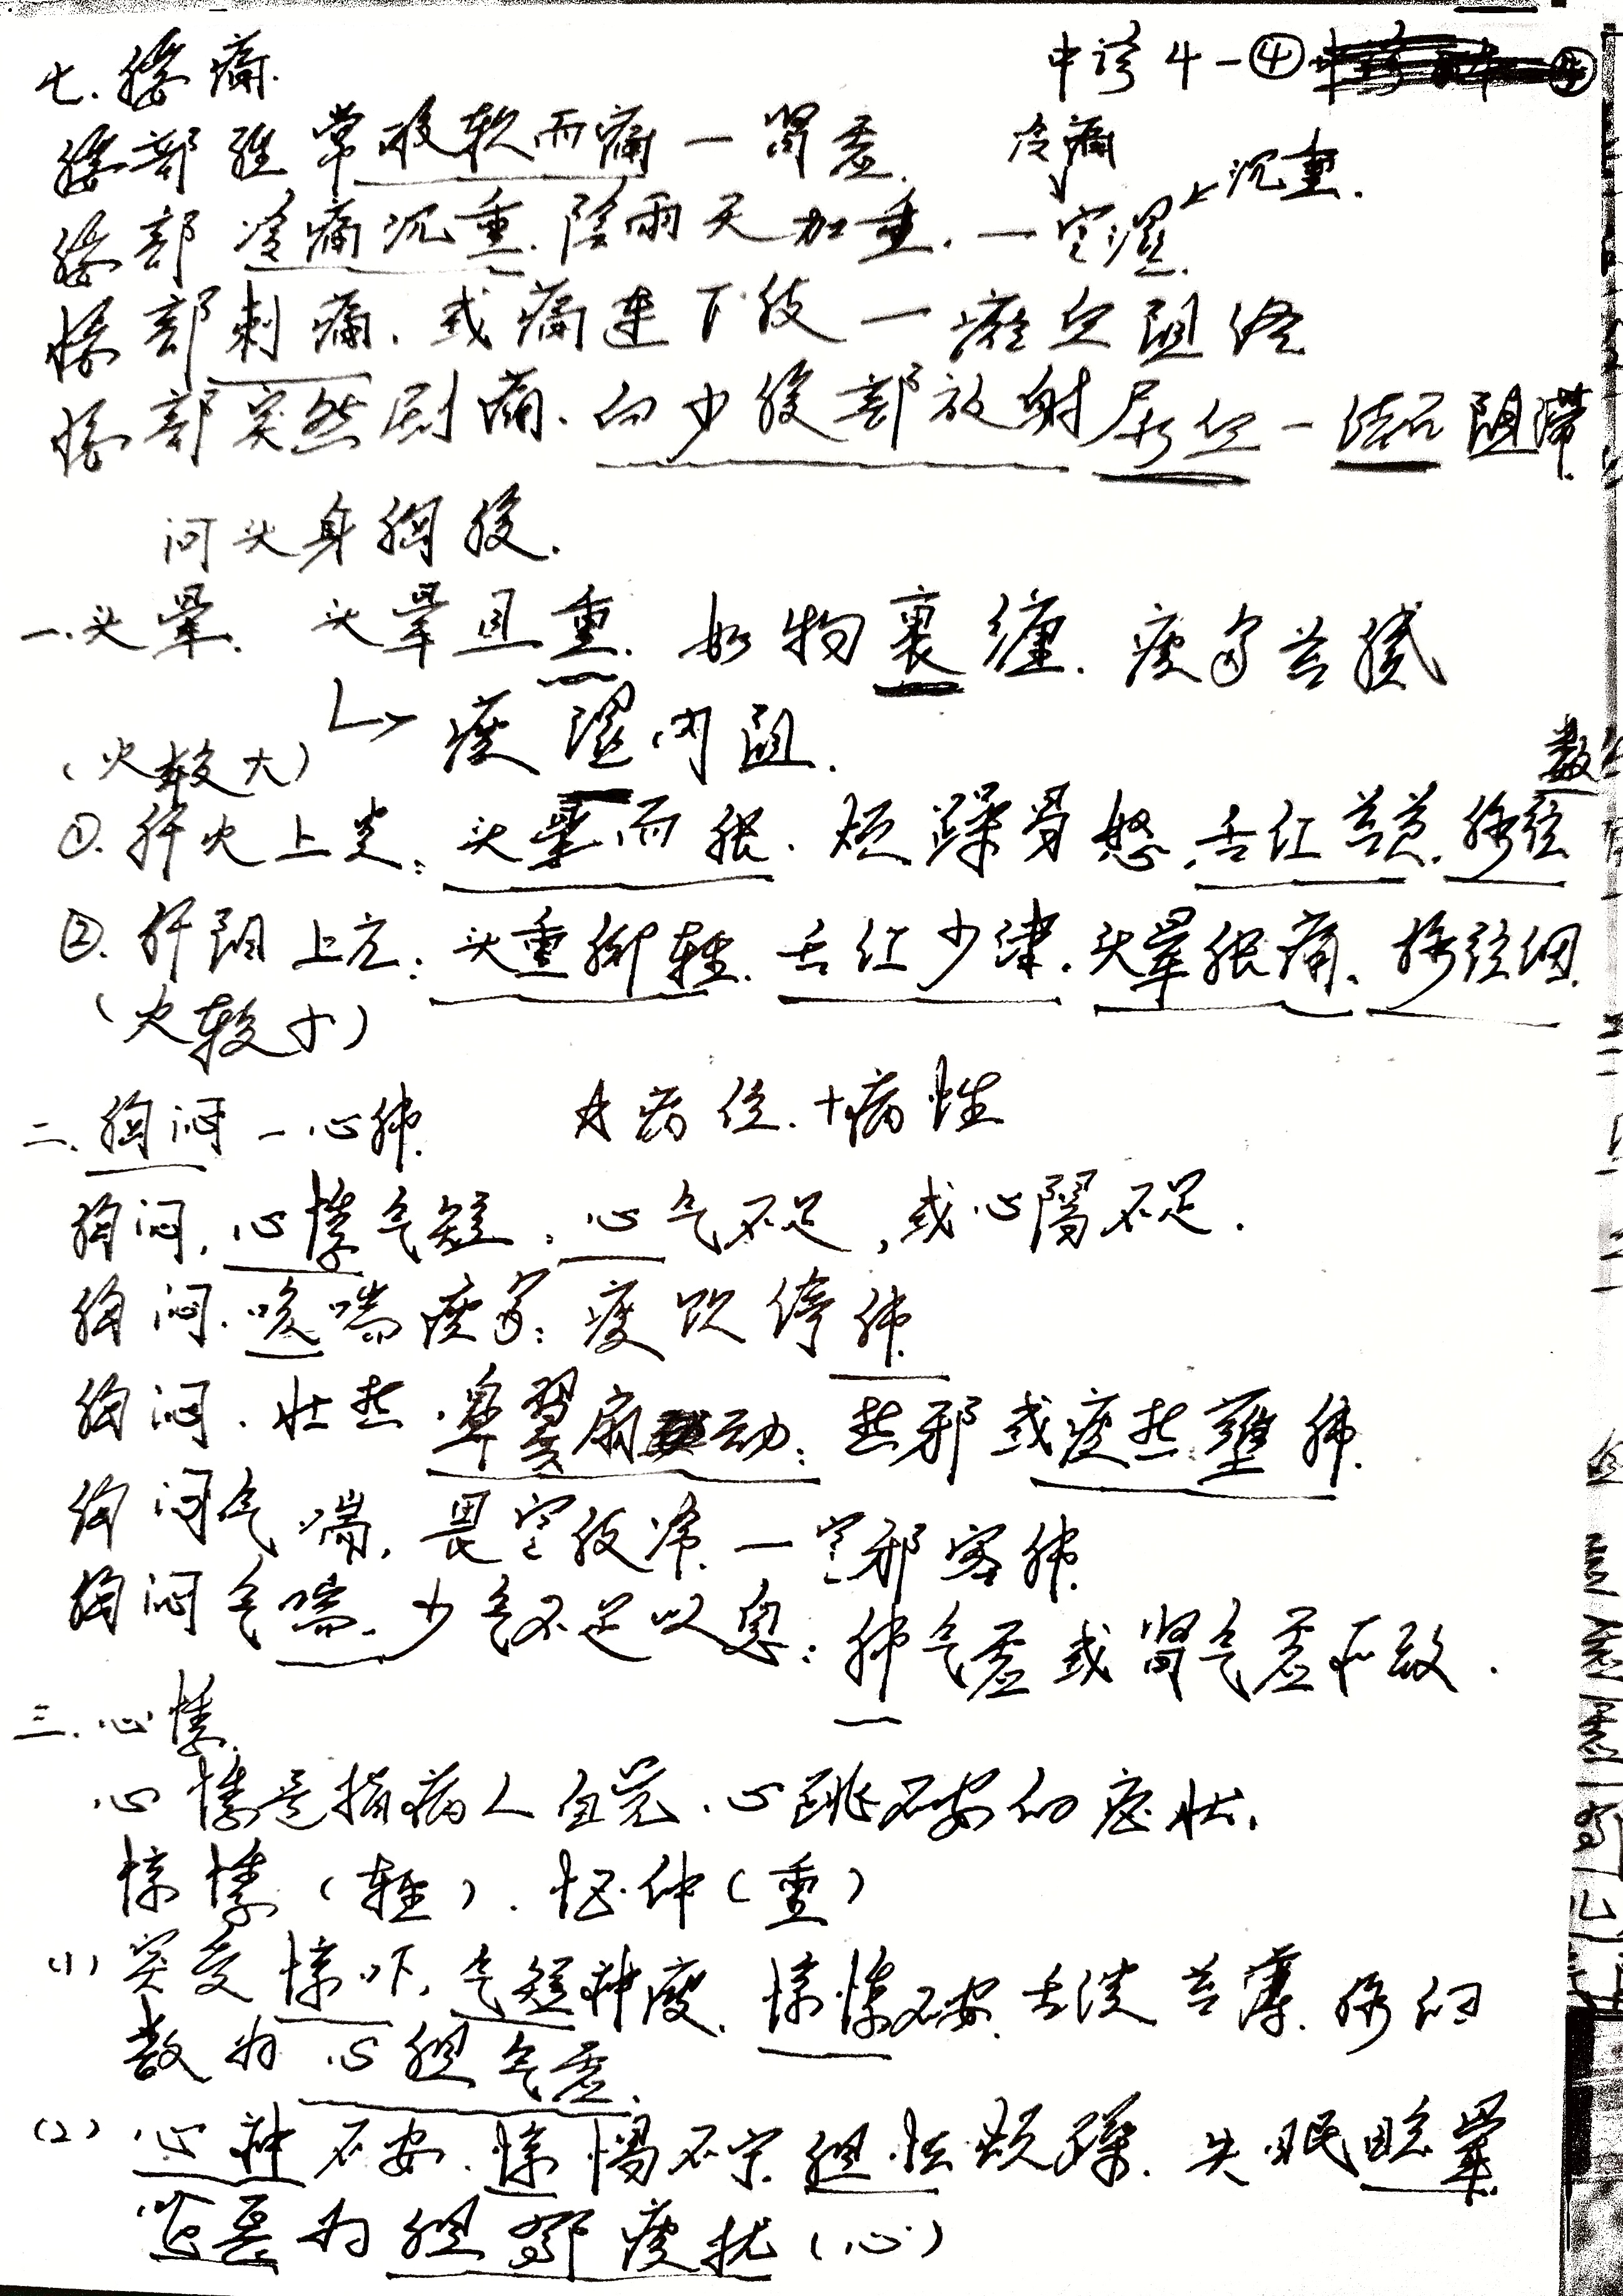 七.腰痛.
中诊4-④
腰部经常酸软而痛-肾虚.
冷痛
沉重.
腰部冷痛沉重.阴雨天加重.-寒湿.
腰部刺痛.或痛连下肢-瘀血阻络
腰部突然剧痛.向少腹部放射尿血-结石阻滞.
问头身胸腹.
一.头晕.头晕且重.如物裹缠.痰多苔腻
→痰湿内阻.
(火较大)
数
①.肝火上炎:头晕而胀.烦躁易怒.舌红苔黄.脉弦
②.肝阳上亢:头重脚轻.舌红少津.头晕胀痛.脉弦细.
(火较小)
二.胸闷-心肺.
☆病位.+病性
胸闷.心悸气短:心气不足,或心阳不足.
胸闷.咳喘痰多:痰饮停肺.
胸闷.壮热.鼻翼扇动:热邪或痰热壅肺.
胸闷气喘.畏寒肢冷.-寒邪客肺.
胸闷气喘.少气不足以息:肺气虚或肾气虚所致.
三.心悸.
心悸是指病人自觉.心跳不安的症状.
惊悸(轻).怔忡(重)
(1)突受惊吓.气短神疲.惊悸不安.舌淡苔薄.脉细
数为心胆气虚.
(2)心神不安.惊惕不宁.胆怯烦躁.失眠眩晕.
呕恶为胆郁痰扰(心)